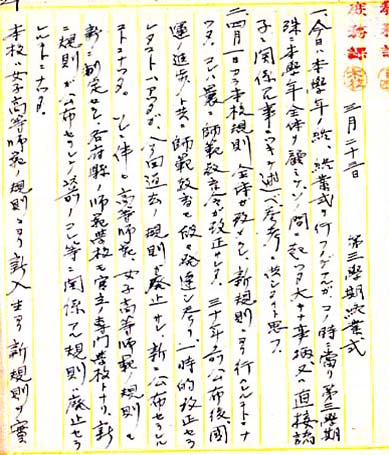 三月二十三日　第三學期終業式
一、今日ハ本學年ノ終、終業式ヲ行フノデアルガコノ時ニ當リ第三學期
殊ニ本學年全体ヲ顧ミテソノ間ニ起ツタ大キナ事柄、又ハ直接諸
子ニ関係アル事ニツキ述ベ参考ニ供シタイト思フ、
二、四月一日カラ本校規則ノ全体ガ改マル、新規則ニヨリ行ハレルコトニナ
ツタ、コレハ曩ニ師範教育令ガ改正サレタ、三十年前公布後、國
運ノ進歩ト共ニ師範教育モ倣ヒ発達シ来リ、一時的改正セラ
レタコトハアツタガ、今回過去ノ規則ヲ廃止サレ新ニ公布セラレ
ルコトニナツタ。ソレニ伴ヒ高等師範、女子高等師範ノ規則モ
新ニ制定セラレ、各府縣ノ師範學校モ官立ノ専門學校トナリ、新
ニ規則ガ公布セラレ、従前ノコレ等ニ関係アル規則ハ廃止セラ
レルコトニナツタ、
本校ハ女子高等師範ノ規則ニヨリ新入生ヨリ新規則ヲ實